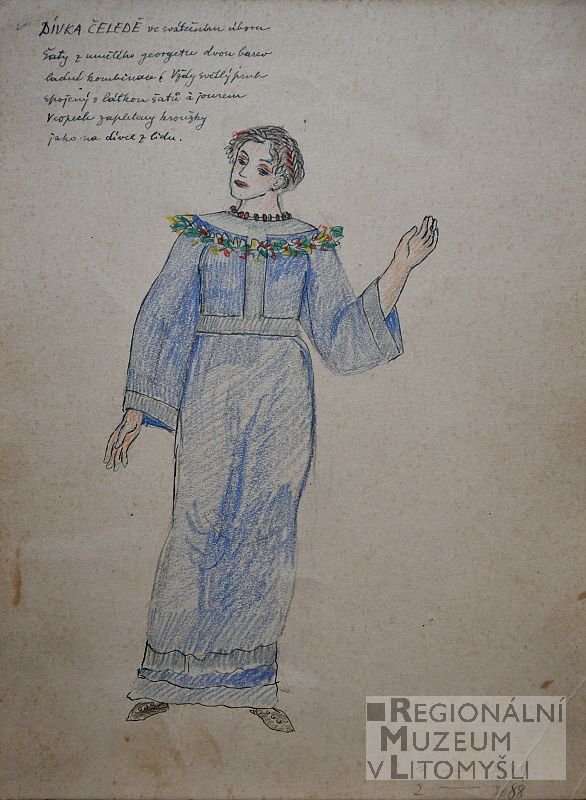 DÍVKA ČELEDĚ ve svátečním úboru
Šaty z umělého georgetu dvou barev
ladné kombinace Vždy světlý pruh
spojený s látkou šatů à jourem
V copech zapleteny kroužky
jako na dívce z lidu.
REGIONÁLNÍ
MUZEUM
V LITOMYŠLI
2 — 88